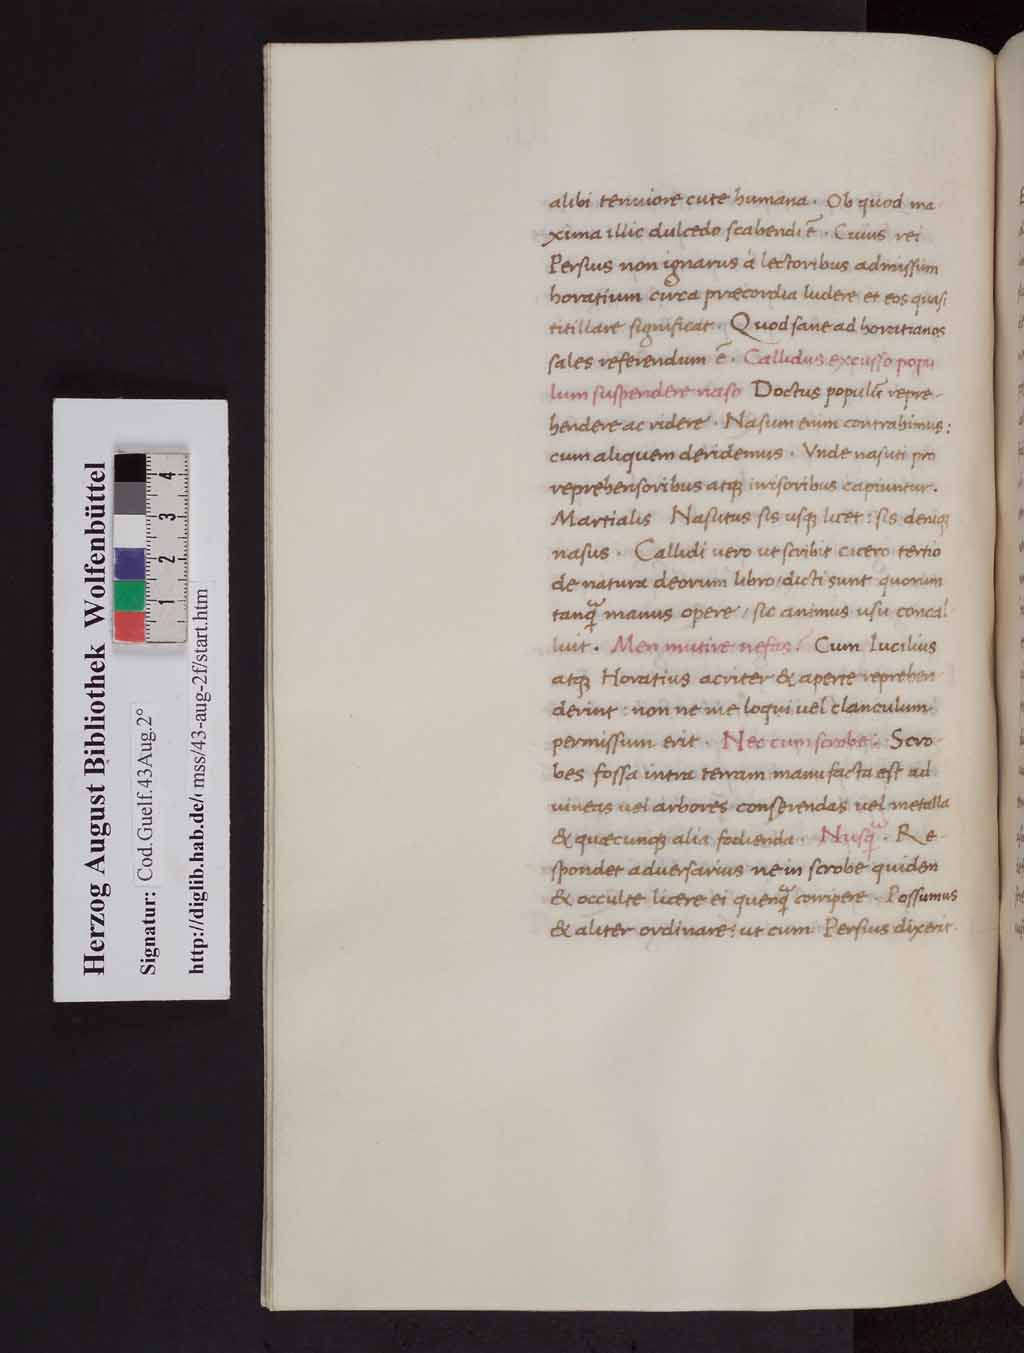 alibi tenuiore cute humana . Ob quod ma
xima illic dulcedo scabendi ē . Cuius rei
Persius non ignarus à lectoribus admissum
horatium circa præcordia ludere et eos quasi
titillare significat . Quod sane ad horatianos
sales referendum ē . Callidus excusso popu
lum suspendere naso Doctus populū repre-
hendere ac ridere . Nasum enim contrahimus :
cum aliquem deridemus . Vnde nasuti pro
reprehensoribus atqȝ irrisoribus capiuntur .
Martialis Nasutus sis usqȝ licet : sis deniqȝ
nasus . Callidi uero ut scribit cicero tertio
de natura deorum libro / dicti sunt quorum
tanqᷓ manus opere / sic animus usu concal
luit . Men mutire nefas ? Cum Lucilius
atqȝ Horatius acriter & aperte reprehen
derint : non ne me loqui uel clanculum
permissum erit . Nec cum scrobe . Scro-
bes fossa intra terram manu facta est ad
uineas uel arbores conserendas uel metalla
& quæcunqȝ alia fodienda . Nusqᷓ . Re-
spondet aduersarius ne in scrobe quiden
& occulte licere ei quenqᷓ corripere . Possumus
& aliter ordinare : ut cum Persius dixerit .
Herzog August Bibliothek Wolfenbüttel
Signatur: Cod. Guelf. 43 Aug. 2°
http://diglib.hab.de/ mss/43-aug-2f/start.htm
1 2 3 4